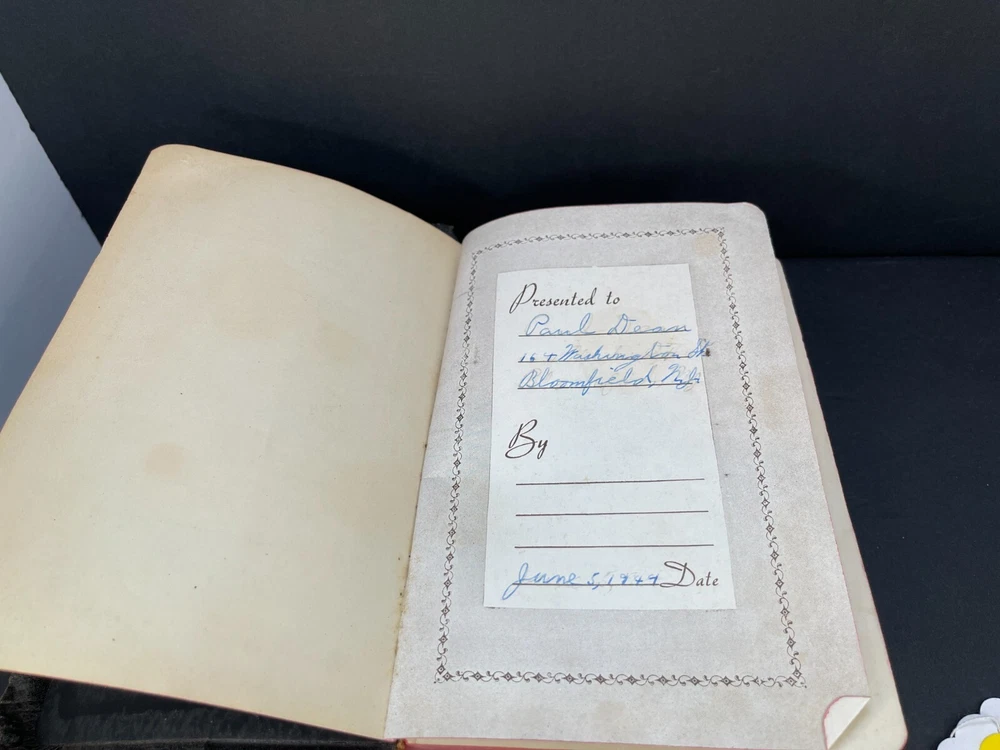 Presented to
Paul Dean
164 Washington St
Bloomfield, N.J.
By
June 5, 1949 Date